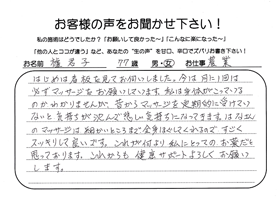 お客様の声をお聞かせ下さい！
私の施術はどうでしたか？「お願いして良かった～」「こんなに楽になった～」
「他の人とココが違う」など、あなたの“生の声”を甘口、辛口でズバリお書き下さい！
お名前 椎名子 77歳 男・女 お仕事 農業
はじめは看板を見てお伺いしました。今は月に1回は
必ずマッサージをお願いしています。私は身体がこっている
のかわかりませんが、昔からマッサージを定期的に受けてい
ないと気持ちが沈んで悲しい気持ちになってきます。はなさん
のマッサージは細かいところまで全身ほぐしてくれるので すごく
スッキリして良いです。これが何より私にとってのお薬だと
思っております。これからも健康サポートよろしくお願い
します。